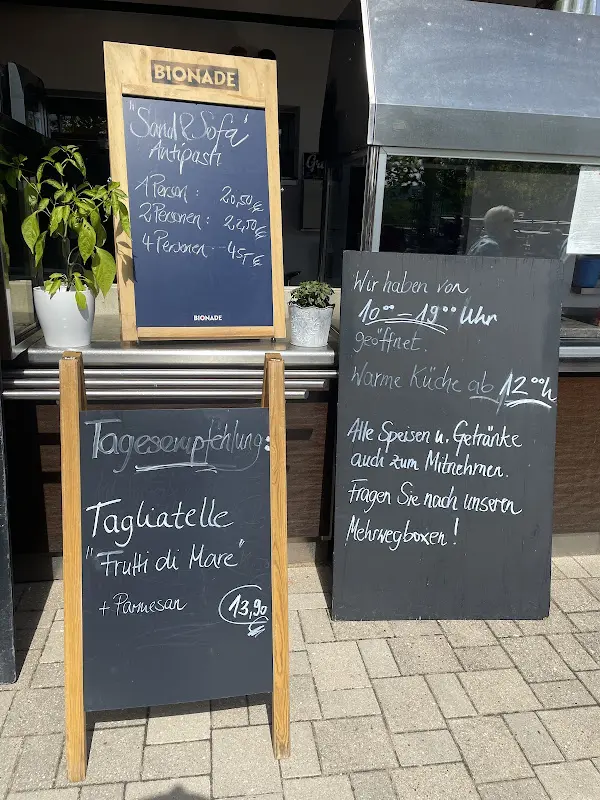 BIONADE
"Sand & Sofa"
Antipasti
1 Person : 20,50 €
2 Personen : 22,50 €
4 Personen -- 45,- €
BIONADE
Wir haben von
10°° - 19°° Uhr
geöffnet.
Warme Küche ab 12°°h
Alle Speisen u. Getränke
auch zum Mitnehmen.
Fragen Sie nach unseren
Mehrwegboxen!
Tagesempfehlung:
Tagliatelle
"Frutti di Mare"
+ Parmesan
13,90
€